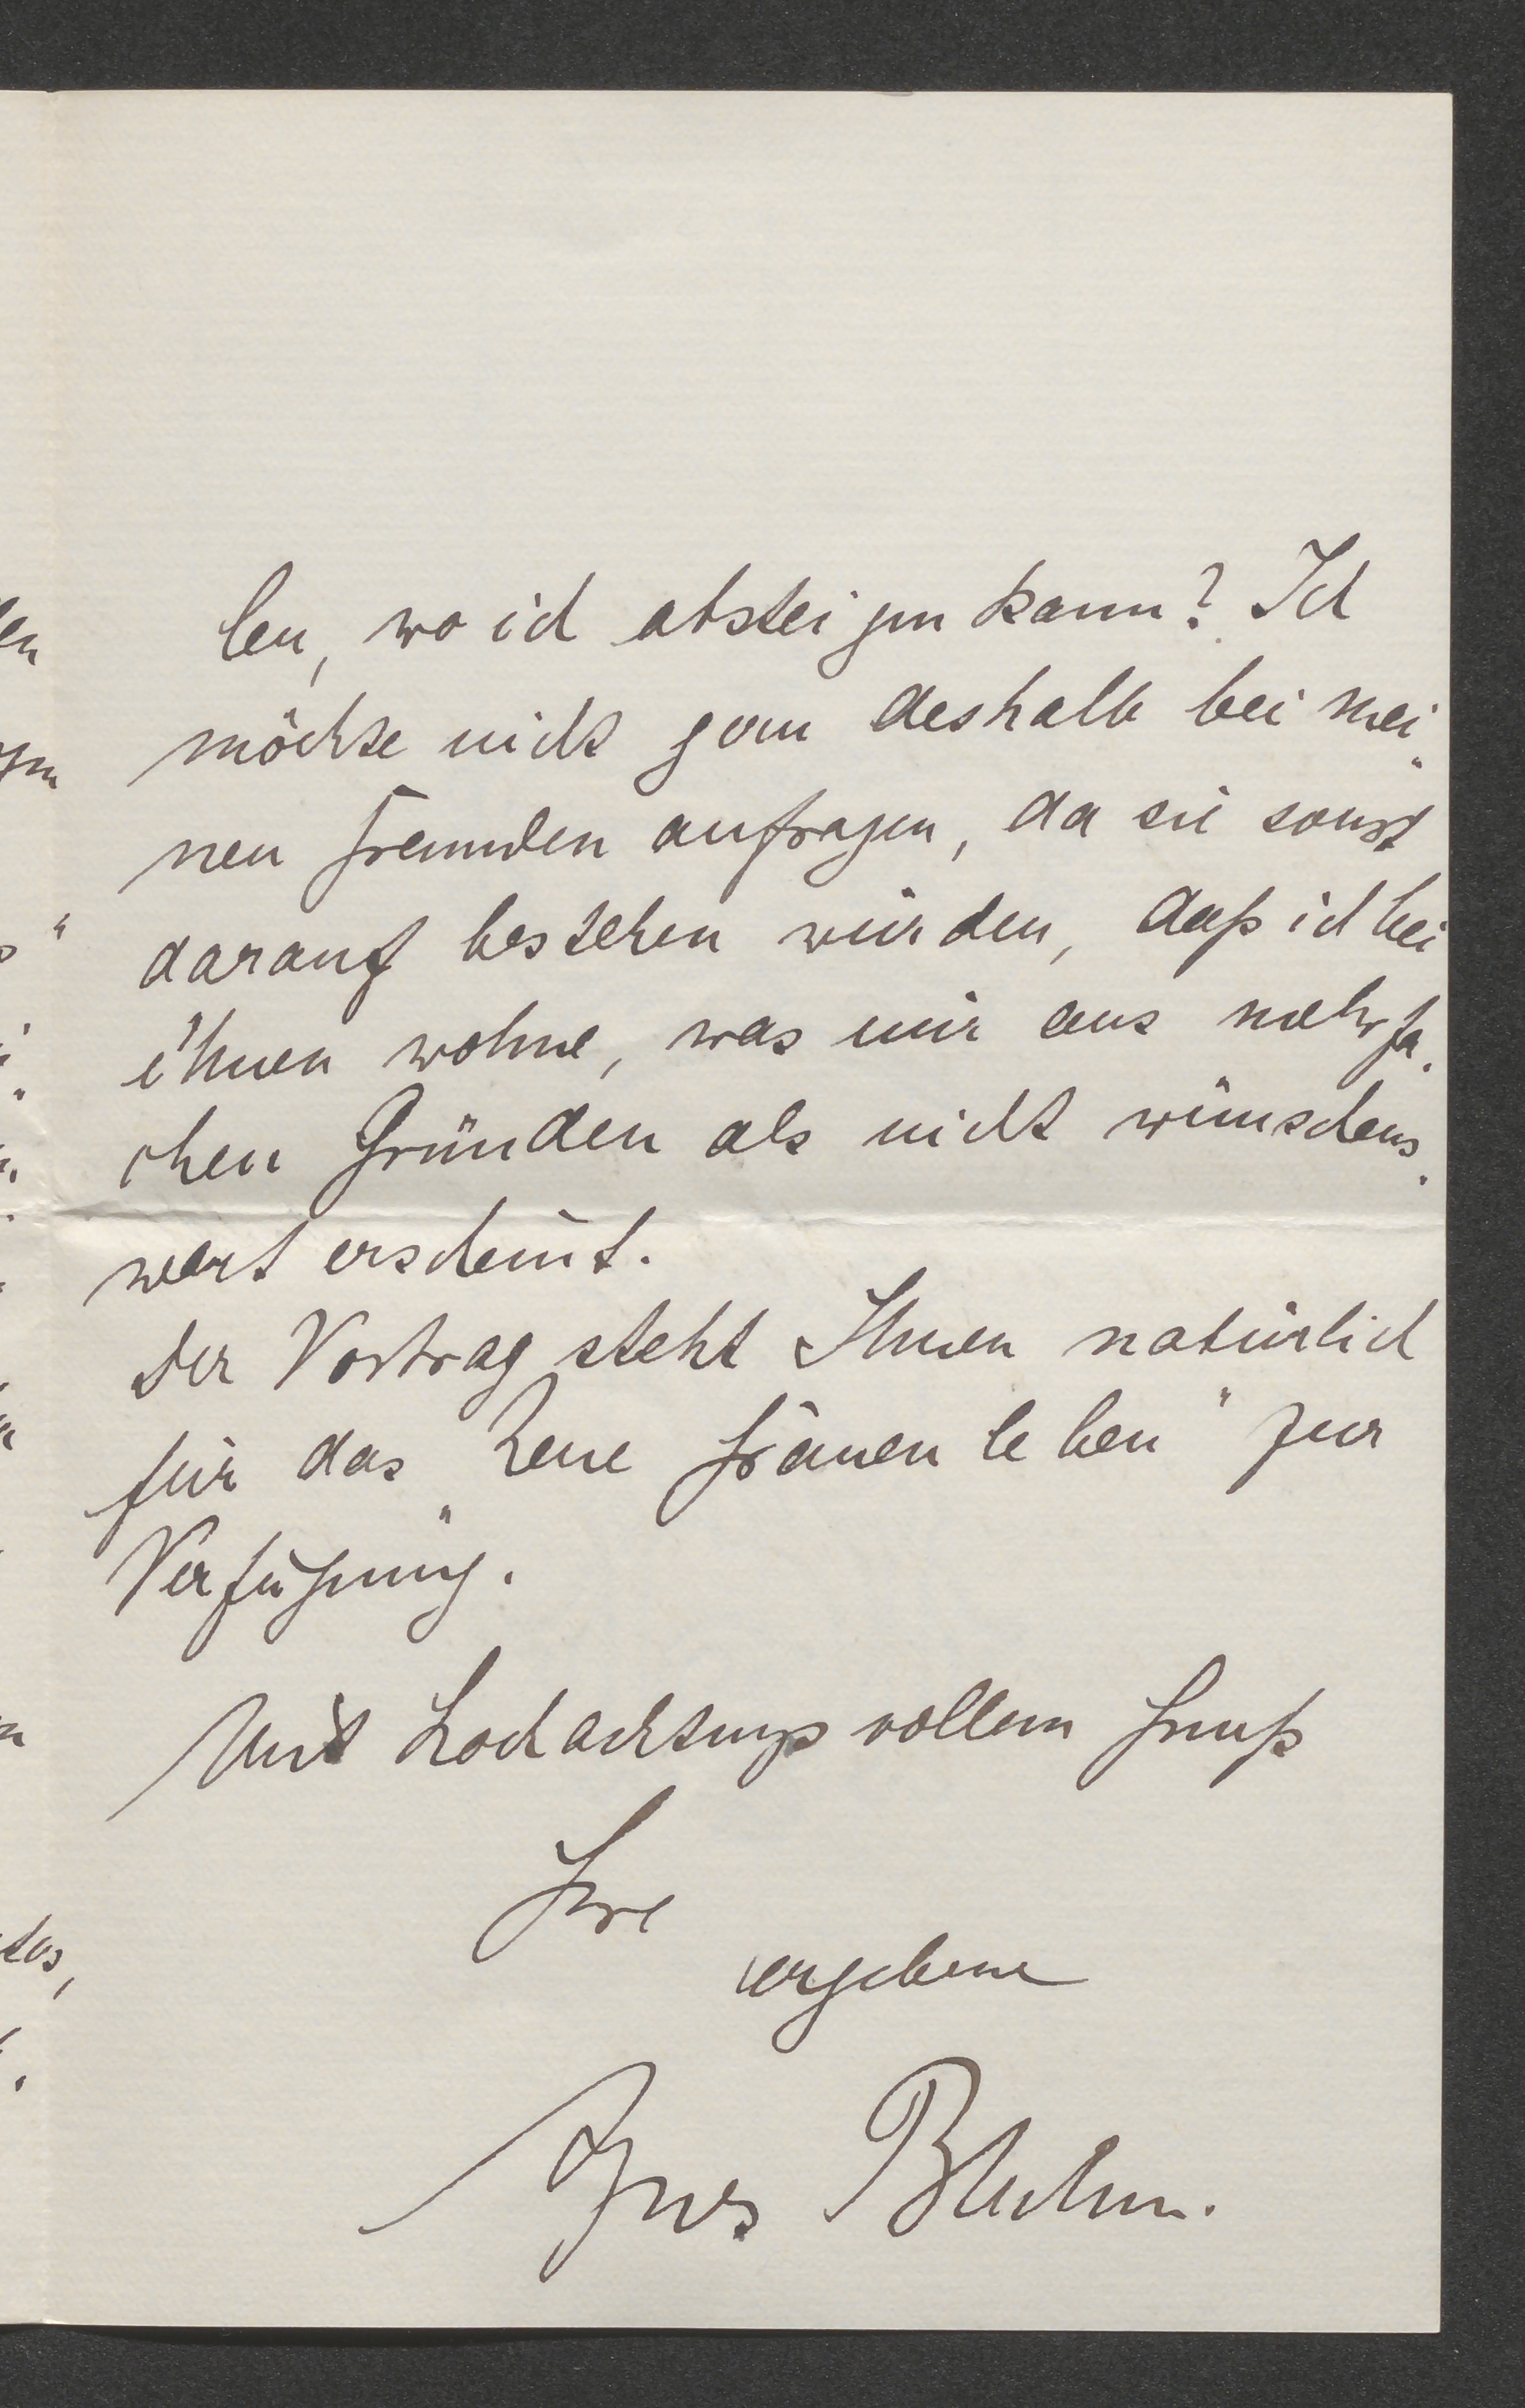 len, wo ich absteigen kann? Ich
möchte nicht gern deshalb bei mei„
nen Freunden anfragen, da sie sonst
darauf bestehen würden, daß ich bei
ihnen wohne, was mir aus mehrfa„
chen Gründen als nicht wünschens„
wert erscheint.
Der Vortrag steht Ihnen natürlich
für das „Neue Frauenleben“ zur
Verfügung.
Mit hochachtungsvollem Gruß
Ihre
ergebene
Agnes Bluhm.